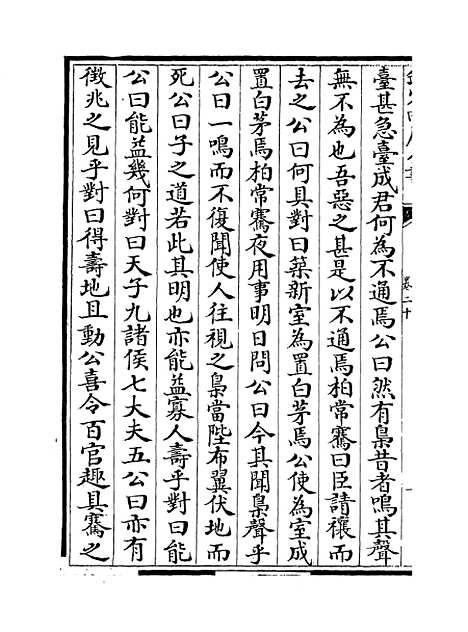 臺甚急臺成君何為不通焉公曰然有梟昔者鳴其聲
無不為也吾惡之甚是以不通焉柏常騫曰臣請禳而
去之公曰何具對曰築新室為置白茅焉公使為室成
置白茅焉柏常騫夜用事明日問公曰今其聞梟聲乎
公曰一鳴而不復聞使人往視之梟當陛布翼伏地而
死公曰子之道若此其明也亦能益寡人壽乎對曰能
公曰能益幾何對曰天子九諸侯七大夫五公曰亦有
徴兆之見乎對曰得壽地且動公喜令百官趣具騫之
卷二十